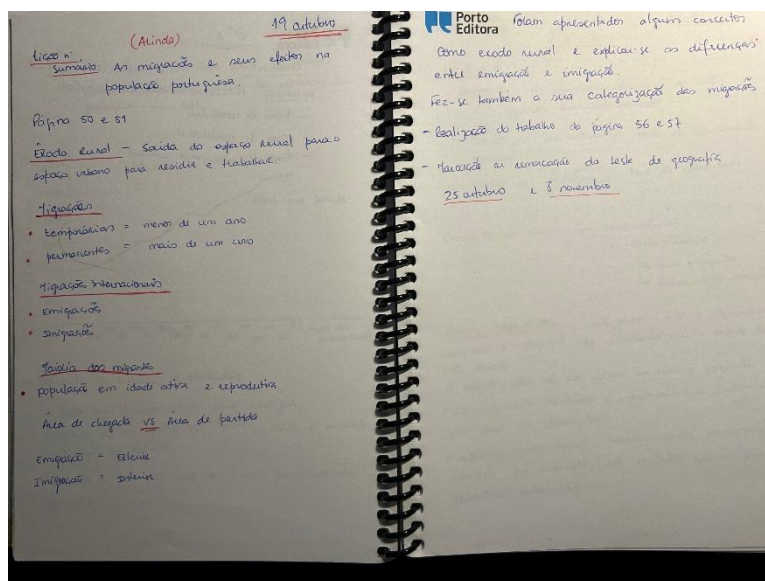 19 outubro
(Alinda)
Lição nº
Sumário: As migrações e seus efeitos na
população portuguesa.
Página 50 e 51
Êxodo Rural - Saída do espaço rural para o
espaço urbano para residir e trabalhar.
Migrações
• temporárias = menos de um ano
• permanentes = mais de um ano
Migrações internacionais
• Emigração
• Imigração
Maioria dos migrantes
• população em idade ativa e reprodutiva
Área de chegada vs Área de partida
Emigração =
Imigração =
Porto
Editora
Foram apresentados alguns conceitos
como exodo rural e explicou-se as diferenças
entre emigração e imigração.
Fez-se também a sua categorização das migrações
- Realização do trabalho da página 56 e 57
- Marcação ou remarcação do teste de geografia
25 outubro e 8 novembro